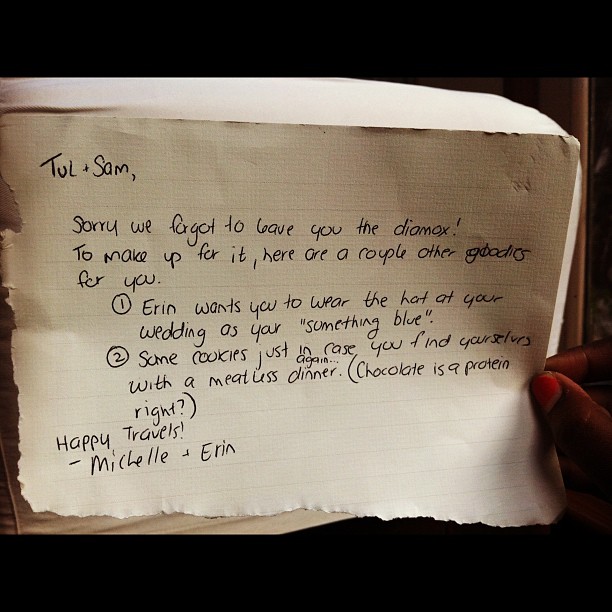 Tul + Sam,
Sorry we forgot to leave you the diamox!
To make up for it, here are a couple other goodies
for you.
① Erin wants you to wear the hat at your
wedding as your "something blue".
② Some cookies just in case you find yourselves
again...
with a meatless dinner. (Chocolate is a protein
right?)
Happy Travels!
- Michelle + Erin